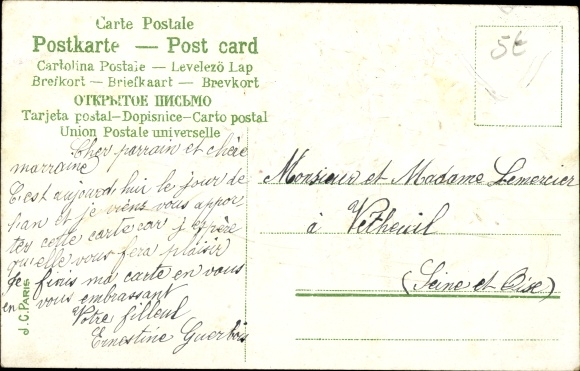 Carte Postale
Postkarte — Post card
Cartolina Postale — Levelező Lap
Brefkort — Briefkaart — Brevkort
ОТКРЫТОЕ ПИСЬМО
Tarjeta postal—Dopisnice—Carto postal
Union Postale universelle
5€
Cher parrain et chère
marraine
C'est aujourd'hui le jour de
l'an et je viens vous appor
ter cette carte car j'espère
qu'elle vous fera plaisir
Je finis ma carte en vous
en vous embrassant
Votre filleul
Ernestine Guerbois
J.C. PARIS
Monsieur et Madame Lemercier
à Vetheuil
(Seine et Oise)